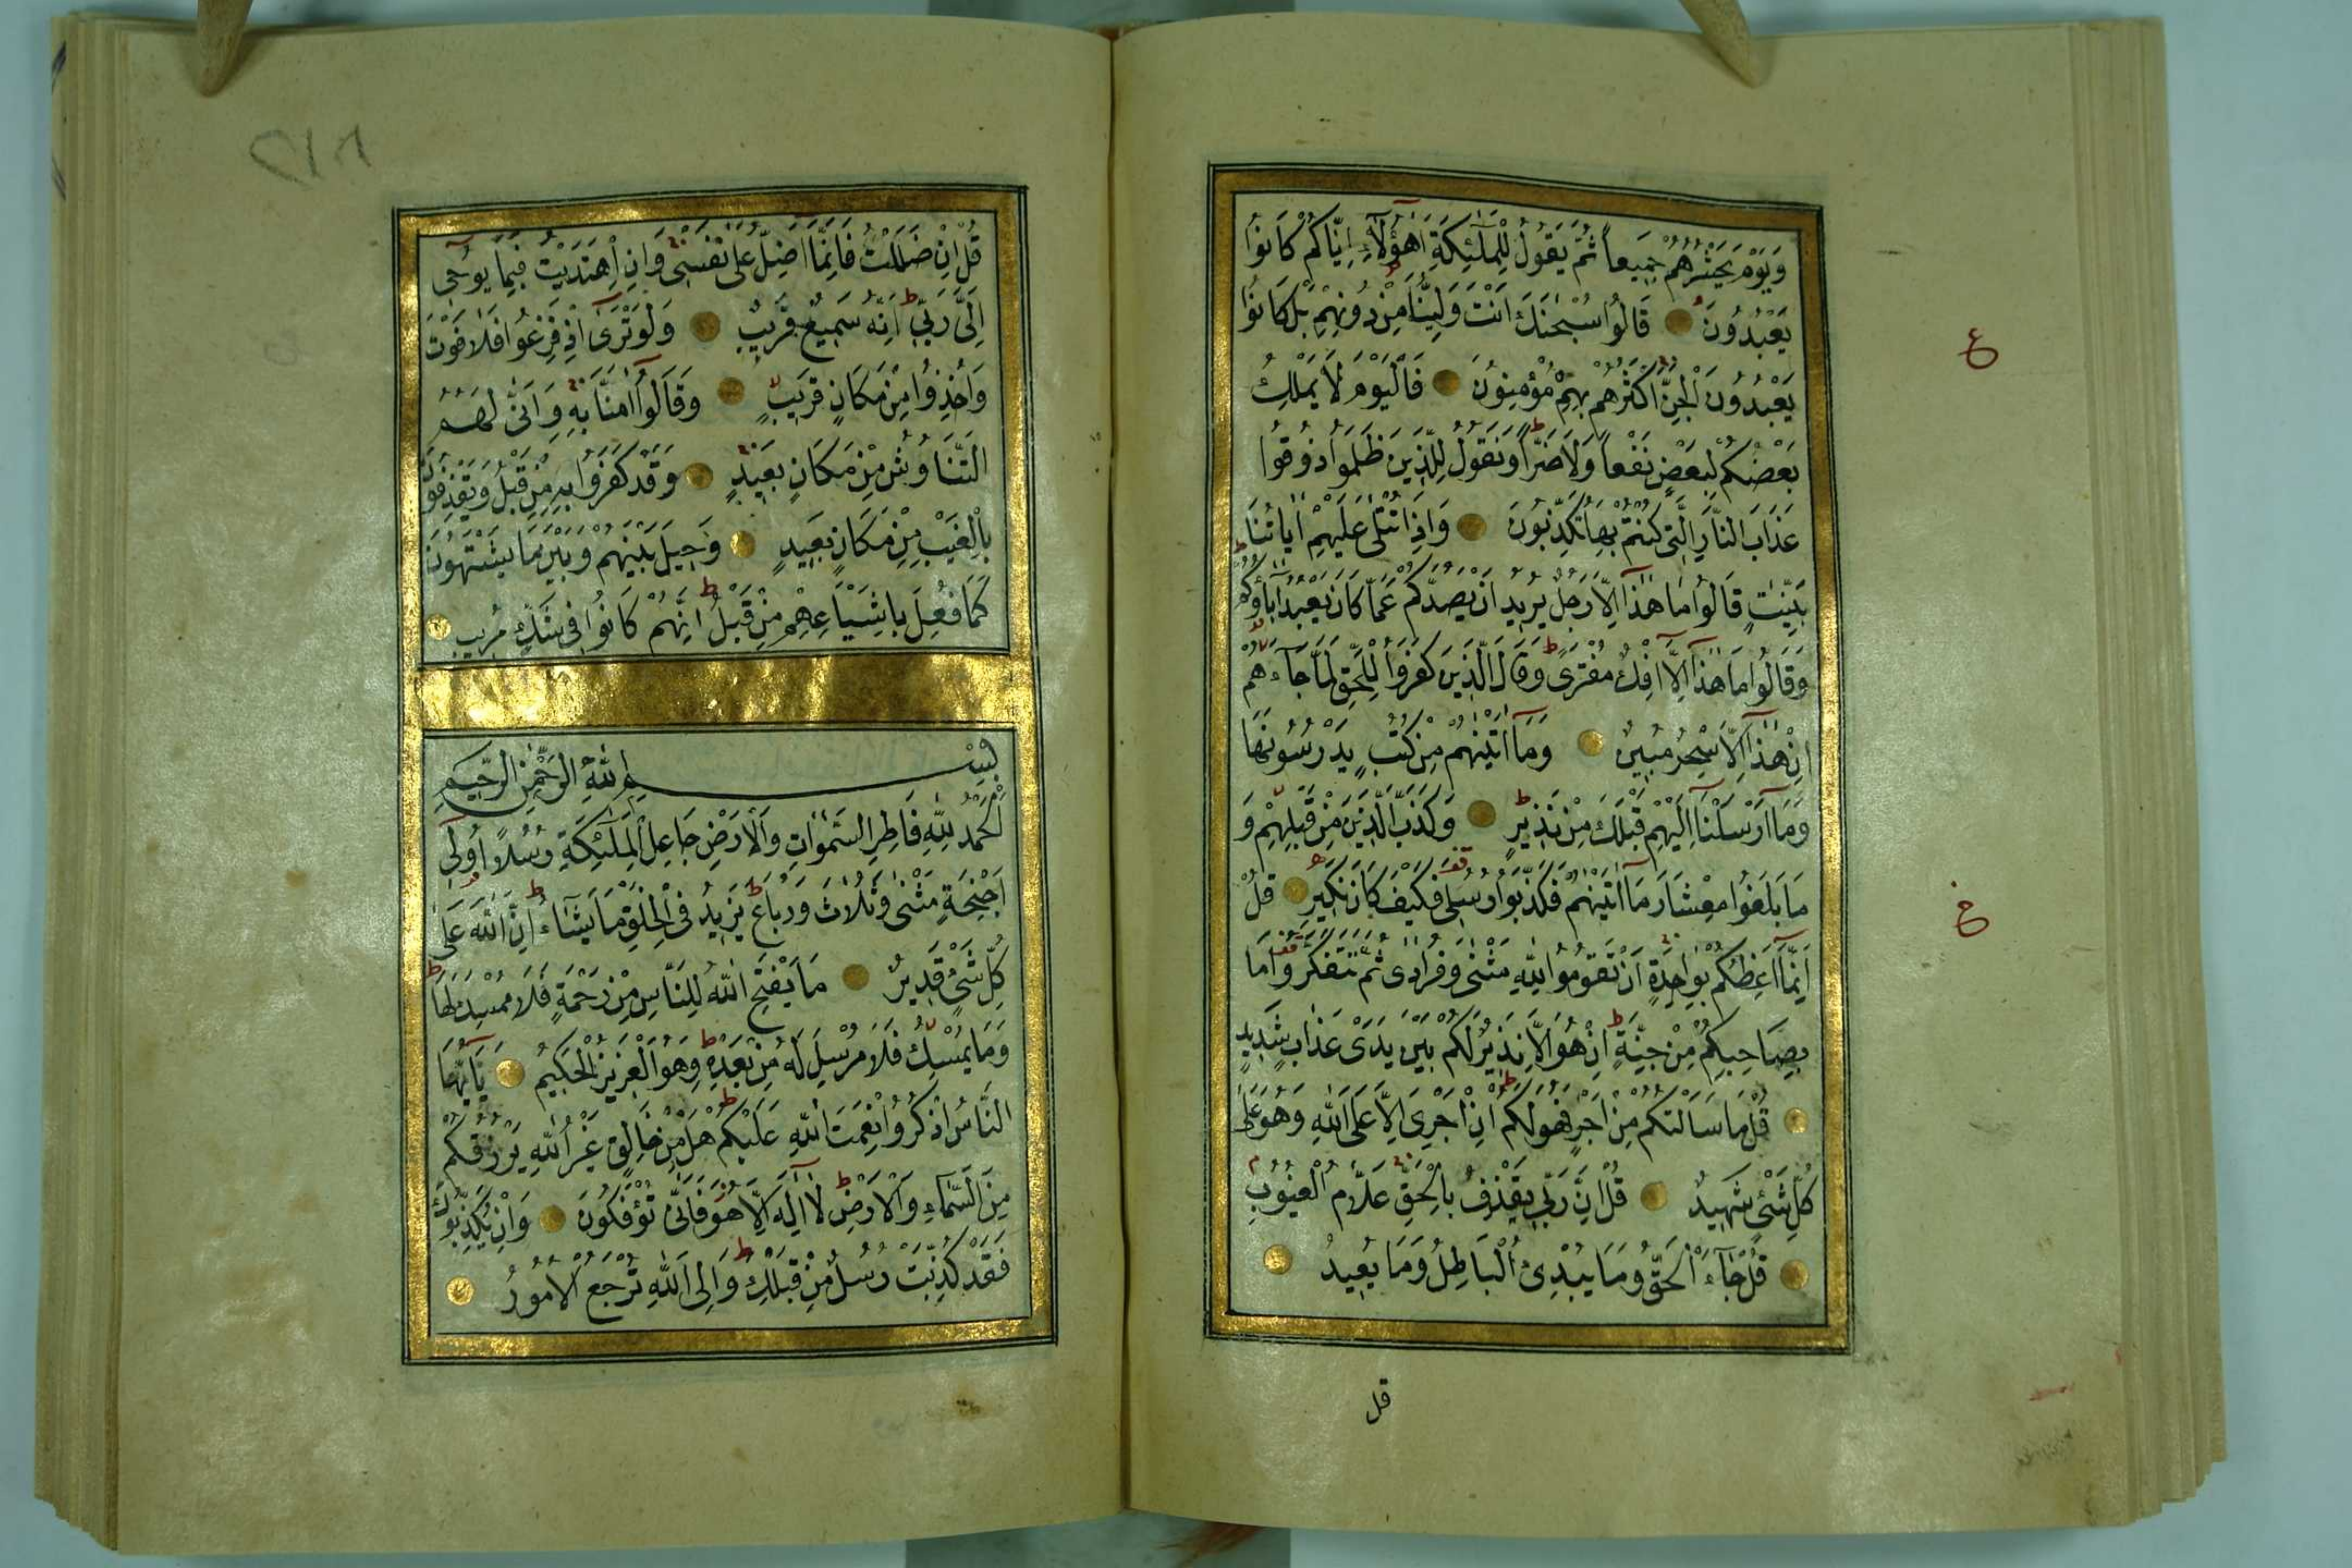 وَيَوْمَ يَحْشُرُهُمْ جَمِيعاً ثُمَّ يَقُولُ لِلْمَلٰٓئِكَةِ اَهٰٓؤُلَٓاءِ اِيَّاكُمْ كَانُوا
يَعْبُدُونَ ۝ قَالُوا سُبْحٰنَكَ اَنْتَ وَلِيُّنَا مِنْ دُونِهِمْ بَلْ كَانُوا
يَعْبُدُونَ الْجِنَّ اَكْثَرُهُمْ بِهِمْ مُؤْمِنُونَ ۝ فَالْيَوْمَ لَا يَمْلِكُ
بَعْضُكُمْ لِبَعْضٍ نَفْعاً وَلَا ضَرًّا وَنَقُولُ لِلَّذِينَ ظَلَمُوا ذُوقُوا
عَذَابَ النَّارِ الَّتِى كُنْتُمْ بِهَا تُكَذِّبُونَ ۝ وَاِذَا تُتْلٰى عَلَيْهِمْ اٰيَاتُنَا
بَيِّنٰتٍ قَالُوا مَا هٰذَٓا اِلَّا رَجُلٌ يُرِيدُ اَنْ يَصُدَّكُمْ عَمَّا كَانَ يَعْبُدُ اٰبَاؤُكُمْ
وَقَالُوا مَا هٰذَٓا اِلَّٓا اِفْكٌ مُفْتَرًى وَقَالَ الَّذِينَ كَفَرُوا لِلْحَقِّ لَمَّا جَٓاءَهُمْ
اِنْ هٰذَٓا اِلَّا سِحْرٌ مُبِينٌ ۝ وَمَٓا اٰتَيْنٰهُمْ مِنْ كُتُبٍ يَدْرُسُونَهَا
وَمَٓا اَرْسَلْنَٓا اِلَيْهِمْ قَبْلَكَ مِنْ نَذِيرٍ ۝ وَكَذَّبَ الَّذِينَ مِنْ قَبْلِهِمْ وَ
مَا بَلَغُوا مِعْشَارَ مَٓا اٰتَيْنٰهُمْ فَكَذَّبُوا رُسُلِى فَكَيْفَ كَانَ نَكِيرِ ۝ قُلْ
اِنَّمَٓا اَعِظُكُمْ بِوَاحِدَةٍ اَنْ تَقُومُوا لِلّٰهِ مَثْنٰى وَفُرَادٰى ثُمَّ تَتَفَكَّرُوا مَا
بِصَاحِبِكُمْ مِنْ جِنَّةٍ اِنْ هُوَ اِلَّا نَذِيرٌ لَكُمْ بَيْنَ يَدَىْ عَذَابٍ شَدِيدٍ
۝ قُلْ مَا سَاَلْتُكُمْ مِنْ اَجْرٍ فَهُوَ لَكُمْ اِنْ اَجْرِىَ اِلَّا عَلَى اللّٰهِ وَهُوَ عَلٰى
كُلِّ شَىْءٍ شَهِيدٌ ۝ قُلْ اِنَّ رَبِّى يَقْذِفُ بِالْحَقِّ عَلَّامُ الْغُيُوبِ
۝ قُلْ جَٓاءَ الْحَقُّ وَمَا يُبْدِئُ الْبَاطِلُ وَمَا يُعِيدُ ۝
قل
ع
خ
قُلْ اِنْ ضَلَلْتُ فَاِنَّمَٓا اَضِلُّ عَلٰى نَفْسِى وَاِنِ اهْتَدَيْتُ فَبِمَا يُوحٖٓى
اِلَىَّ رَبِّى اِنَّهُ سَمِيعٌ قَرِيبٌ ۝ وَلَوْ تَرٰٓى اِذْ فَزِعُوا فَلَا فَوْتَ
وَاُخِذُوا مِنْ مَكَانٍ قَرِيبٍ ۝ وَقَالُٓوا اٰمَنَّا بِهِ وَاَنّٰى لَهُمُ
التَّنَاوُشُ مِنْ مَكَانٍ بَعِيدٍ ۝ وَقَدْ كَفَرُوا بِهِ مِنْ قَبْلُ وَيَقْذِفُونَ
بِالْغَيْبِ مِنْ مَكَانٍ بَعِيدٍ ۝ وَحِيلَ بَيْنَهُمْ وَبَيْنَ مَا يَشْتَهُونَ
كَمَا فُعِلَ بِاَشْيَاعِهِمْ مِنْ قَبْلُ اِنَّهُمْ كَانُوا فِى شَكٍّ مُرِيبٍ ۝
بِسْمِ اللّٰهِ الرَّحْمٰنِ الرَّحِيمِ
اَلْحَمْدُ لِلّٰهِ فَاطِرِ السَّمٰوَاتِ وَالْاَرْضِ جَاعِلِ الْمَلٰٓئِكَةِ رُسُلاً اُولٖٓى
اَجْنِحَةٍ مَثْنٰى وَثُلَاثَ وَرُبَاعَ يَزِيدُ فِى الْخَلْقِ مَا يَشَٓاءُ اِنَّ اللّٰهَ عَلٰى
كُلِّ شَىْءٍ قَدِيرٌ ۝ مَا يَفْتَحِ اللّٰهُ لِلنَّاسِ مِنْ رَحْمَةٍ فَلَا مُمْسِكَ لَهَا
وَمَا يُمْسِكْ فَلَا مُرْسِلَ لَهُ مِنْ بَعْدِهِ وَهُوَ الْعَزِيزُ الْحَكِيمُ ۝ يَٓا اَيُّهَا
النَّاسُ اذْكُرُوا نِعْمَتَ اللّٰهِ عَلَيْكُمْ هَلْ مِنْ خَالِقٍ غَيْرُ اللّٰهِ يَرْزُقُكُمْ
مِنَ السَّمَٓاءِ وَالْاَرْضِ لَٓا اِلٰهَ اِلَّا هُوَ فَاَنّٰى تُؤْفَكُونَ ۝ وَاِنْ يُكَذِّبُوكَ
فَقَدْ كُذِّبَتْ رُسُلٌ مِنْ قَبْلِكَ وَاِلَى اللّٰهِ تُرْجَعُ الْاُمُورُ ۝